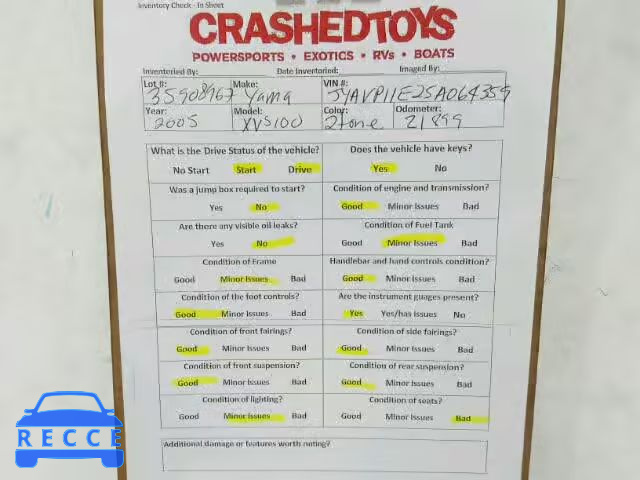 Inventory Check - In Sheet
CRASHEDTOYS
POWERSPORTS • EXOTICS • RVs • BOATS
Inventoried By: Date Inventoried: Imaged By:
Lot #: 35908967 Make: Yama VIN #: JYAVP11E25A064359
Year: 2005 Model: XVS100 Color: 2tone Odometer: 21899
What is the Drive Status of the vehicle? Does the vehicle have keys?
No Start Start Drive Yes No
Was a jump box required to start? Condition of engine and transmission?
Yes No Good Minor Issues Bad
Are there any visible oil leaks? Condition of Fuel Tank
Yes No Good Minor Issues Bad
Condition of Frame Handlebar and hand controls condition?
Good Minor Issues Bad Good Minor Issues Bad
Condition of the foot controls? Are the instrument guages present?
Good Minor Issues Bad Yes Yes/has issues No
Condition of front fairings? Condition of side fairings?
Good Minor Issues Bad Good Minor Issues Bad
Condition of front suspension? Condition of rear suspension?
Good Minor Issues Bad Good Minor Issues Bad
Condition of lighting? Condition of seats?
Good Minor Issues Bad Good Minor Issues Bad
Additional damage or features worth noting?
RECCE